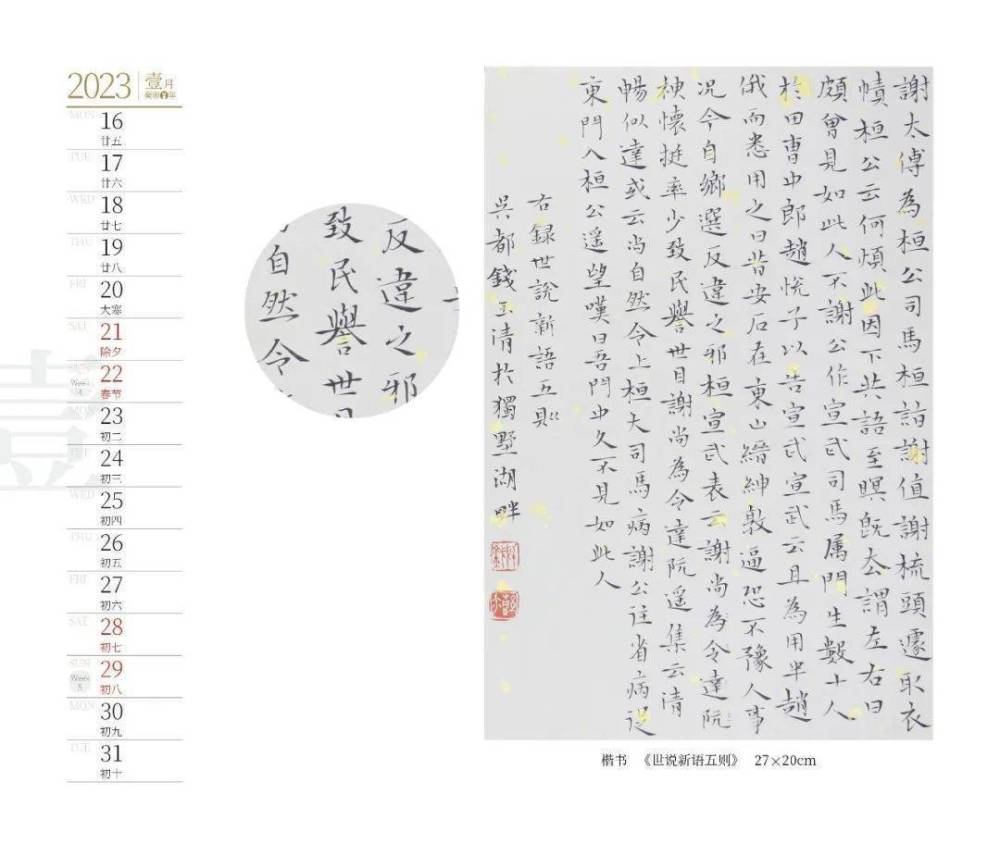 2023 壹月
癸卯年
MON 16
廿五
TUE 17
廿六
WRD 18
廿七
THU 19
廿八
FRI 20
大寒
SAT 21
除夕
SUN 22
Week 4 春节
MON 23
初二
24
初三
WED 25
初四
THU 26
初五
FRI 27
初六
SAT 28
初七
SUN 29
Week 5 初八
MON 30
初九
TUE 31
初十
壹
反違之邪
致民譽世
自然令
謝太傅為桓公司馬桓詣謝值謝梳頭遽取衣
幘桓公云何煩此因下共語至暝既去謂左右曰
頗曾見如此人不謝公作宣武司馬属門生數十人
於田曹中郎趙悅子以告宣武宣武云且為用半趙
俄而悉用之曰昔安石在東山縉紳敦逼恐不豫人事
况今自鄉選反違之邪桓宣武表云謝尚為令達阮
神懷挺率少致民譽世目謝尚為令達阮遥集云清
暢似達或云尚自然令上桓大司馬病謝公往省病從
東門入桓公遥望嘆曰吾門中久不見如此人
右録世說新語五則
吳都錢玉清於獨墅湖畔
楷书 《世说新语五则》 27×20cm